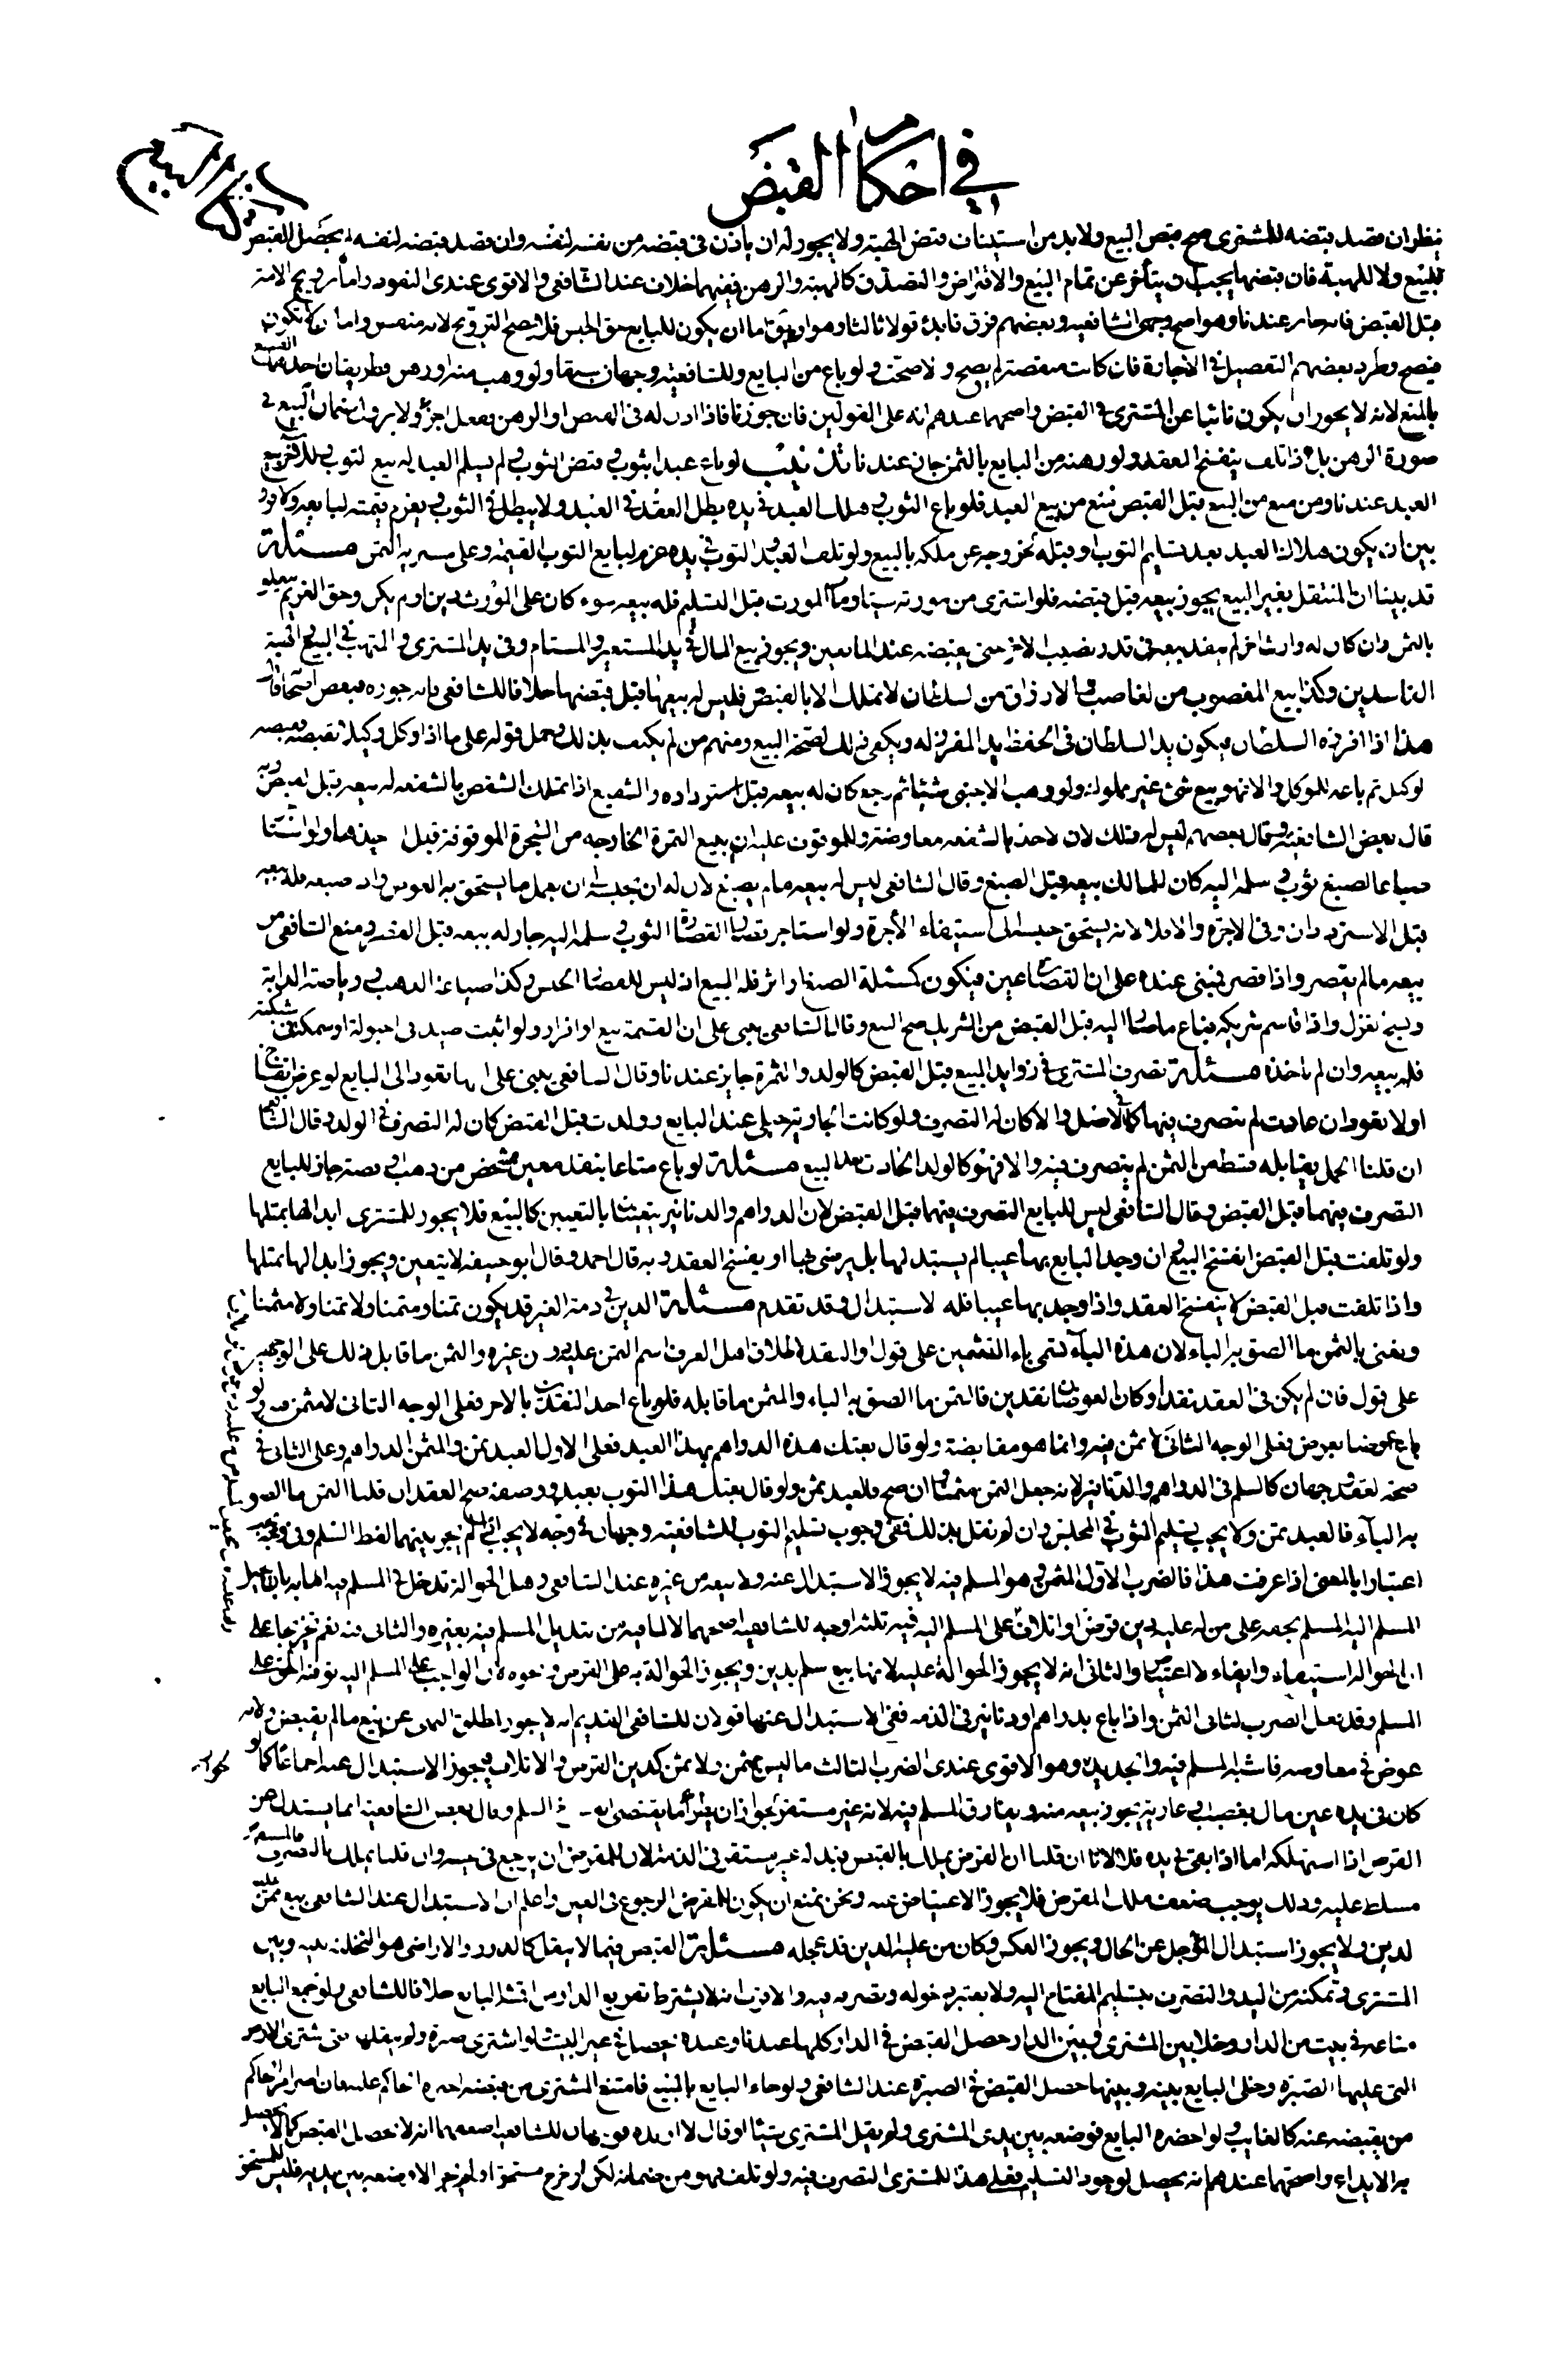 في احكام القبض
ينظر ان قصد قبضه للمشتري صح قبض البيع ولا بد من استيناف قبض الهبة ولا يجوز له ان ياذن في قبضه من نفسه لنفسه وان قصد قبضه لنفسه لم يحصل القبض
للبيع ولا للهبة فان قبضها يجب ان يتأخر عن تمام البيع والاقراض والتصدق كالهبة والرهن ففيهما خلاف عند الشافعي والاقوى عندي النفوذ واما تزويج الامة
قبل القبض فانه جائز عندنا وهو اصح وجهي الشافعية وبعضهم فرق فابدى قولا ثالثا وهو
فيصح وطرد بعضهم التفصيل في الاجارة فان كانت منقصة لم يصح والا صحت ولو باع من البايع وللشافعية وجهان سبقا ولو وهب منه او رهن فطريقان احدهما القطع
بالمنع لانه لا يجوز ان يكون نائبا عن المشتري في القبض واصحهما عندهم انه على القولين فان جوزنا فاذا اذن له في القبض او الرهن ففعل اجزأ ولا يزول ضمان البيع في
صورة الرهن بل اذا تلف ينفسخ العقد ولو رهنه من البايع بالثمن جاز عندنا تذنيب لو باع عبدا بثوب وقبض الثوب ولم يسلم العبد له بيع الثوب وللآخر بيع
العبد عندنا ومن منع من البيع قبل القبض منع من بيع العبد فلو باع الثوب وهلك العبد في يده بطل العقد في العبد ولا يبطل في الثوب ويغرم قيمته لبايعه ولا فرق
بين ان يكون هلاك العبد بعد تسليم الثوب او قبله لخروجه عن ملكه بالبيع ولو تلف العبد والثوب في يده غرم لبايع الثوب القيمة وعلى مشتريه الثمن مسئلة
قد بينا ان المنتقل بغير البيع يجوز بيعه قبل قبضه فلو اشترى من مورثه شيئا ومات المورث قبل التسليم فله بيعه سواء كان على المورث دين او لم يكن وحق الغريم متعلق
بالثمن وان كان له وارث اخر لم ينفذ بيعه في قدر نصيب الاخر حتى يقبضه عند المانعين ويجوز بيع المال في يد المستعير والمستام وفي يد المشتري والمتهب في البيع والهبة
الفاسدين وكذا بيع المغصوب من الغاصب والارزاق من السلطان لا تملك الا بالقبض فليس له بيعها قبل قبضها خلافا للشافعي فانه جوزه
هذا اذا افرزه السلطان فيكون يد السلطان في الحفظ يد المفرز له ويكفي ذلك لصحة البيع ومنهم من لم يكتف بذلك وحمل قوله على ما اذا وكل وكيلا بقبضه فقبضه
الوكيل ثم باعه الموكل والا فهو بيع شيء غير مملوك ولو وهب الاجنبي شيئا ثم رجع كان له بيعه قبل استرداده والشفيع اذا تملك الشقص بالشفعة له بيعه قبل القبض وبه
قال بعض الشافعية وقال بعضهم ليس له ذلك لان الاخذ بالشفعة معاوضة وللموقوف عليه ان يبيع الثمرة الخارجة من الشجرة الموقوفة قبل اخذها ولو استأجر
صباغا لصبغ ثوب وسلمه اليه كان للمالك بيعه قبل الصبغ وقال الشافعي ليس له بيعه ما لم يصبغ لان له ان يحبسه الى ان يعمل ما يستحق به العوض واذا صبغه فله بيعه
قبل الاسترداد ان وفى الاجرة والا فلا لانه يستحق حبسه الى استيفاء الأجرة ولو استاجر قصارا لقصارة الثوب وسلمه اليه جاز له بيعه قبل القصر ومنع الشافعي من
بيعه ما لم يقصر واذا قصر فيبنى عنده على ان القصارة عين فيكون كمسئلة الصبغ او اثر فله البيع اذ ليس للقصار الحبس وكذا صياغة الذهب ورياضة الدابة
ونسج الغزل واذا قاسم شريكه فباع ما صار اليه قبل القبض من الشريك صح البيع وقال الشافعي يبنى على ان القسمة بيع او افراز ولو اثبت صيد في احبولة او سمكة في شبكته
فله بيعه وان لم ياخذه مسئلة تصرف المشتري في زوايد المبيع قبل القبض كالولد والثمرة جايز عندنا وقال الشافعي يبنى على انها تعود الى البايع لو عرض انفساخ
او لا تعود ان عادت لم يتصرف فيها كما في الاصل والا كان له التصرف ولو كانت الجارية حبلى عند البايع وولدت قبل القبض كان له التصرف في الولد وقال الشافعي
ان قلنا الحمل يقابله قسط من الثمن لم يتصرف فيه والا فهو كالولد الحادث بعد البيع مسئلة لو باع متاعا بنقد معين مشخص من ذهب او فضة جاز للبايع
التصرف فيهما قبل القبض وقال الشافعي ليس للبايع التصرف فيهما قبل القبض لان الدراهم والدنانير يتعينان بالتعيين كالبيع فلا يجوز للمشتري ابدالها بمثلها
ولو تلفت قبل القبض انفسخ البيع وان وجد البايع بها عيبا لم يستبدلها بل يرضى بها او يفسخ العقد وبه قال احمد وقال ابو حنيفة لا يتعين ويجوز ابدالها بمثلها
واذا تلفت قبل القبض لا ينفسخ العقد واذا وجد بها عيبا فله الاستبدال وقد تقدم مسئلة الدين في ذمة الغير قد يكون ثمنا ومثمنا ولا ثمنا ولا مثمنا
ونعني بالثمن ما الصق به الباء لان هذه الباء تسمى باء التثمين على قول او النقد لاطلاق اهل العرف اسم الثمن عليه دون غيره والمثمن ما قابل ذلك على الوجهين
على قول فان لم يكن في العقد نقد او كان العوضان نقدين فالثمن ما الصق به الباء والمثمن ما قابله فلو باع احد النقدين بالاخر فعلى الوجه الثاني لا مثمن فيه ولو
باع عوضا بعوض فعلى الوجه الثاني لا ثمن فيه وانما هو مقايضة ولو قال بعتك هذه الدراهم بهذا العبد فعلى الاول العبد ثمن والمثمن الدراهم وعلى الثاني في
صحة العقد وجهان كالسلم في الدراهم والدنانير لانه جعل الثمن مثمنا فان صح فالعبد مثمن ولو قال بعتك هذا الثوب بعبد ووصفه صح العقد فان قلنا الثمن ما الصق
به الباء فالعبد ثمن ولا يجب تسليم الثوب في المجلس وان لم نقل بذلك ففي وجوب تسليم الثوب للشافعية وجهان في وجه لا يجب اذا لم يجر بينهما لفظ السلم وفي وجه
اعتبارا بالمعنى اذا عرفت هذا فالضرب الاول المثمن وهو المسلم فيه لا يجوز الاستبدال عنه ولا بيعه من غيره عند الشافعي وهل الحوالة تدخل في المسلم فيه اما به بان يحيل
المسلم اليه المسلم بحقه على من له عليه دين قرض او اتلاف او على المسلم اليه فيه ثلثة اوجه للشافعية اصحهما لا لما فيه من تبديل المسلم فيه بغيره والثاني منه نعم تخريجا على
ان الحوالة استيفاء وايفاء لا اعتياض والثاني انه لا يجوز الحوالة عليه لانها بيع سلم بدين ويجوز الحوالة به على القرض ونحوه لان الواجب على المسلم اليه توفية الحق على
المسلم وقد فعل الضرب الثاني الثمن واذا باع بدراهم او دنانير في الذمة ففي الاستبدال عنها قولان للشافعي القديم انه لا يجوز لاطلاق النهي عن بيع ما لم يقبض ولانه
عوض في معاوضة فاشبه المسلم فيه والجديد وهو الاقوى عندي الضرب الثالث ما ليس بثمن ولا مثمن كدين القرض والاتلاف فيجوز الاستبدال عنه اجماعا كما لو
كان في يده عين مال بغصب او عارية يجوز بيعه منه ويفارق المسلم فيه لانه غير مستقر لجواز ان يطرأ ما يقتضي السلم وقال بعض الشافعية انما يستبدل عن
القرض اذا استهلكه اما اذا بقي في يده فلا لانا ان قلنا ان القرض يملك بالقبض فبدله غير مستقر في الذمة لان للمقرض ان يرجع في عينه وان قلنا يملك بالتصرف فالمستقرض
مسلط عليه وذلك يوجب ضعف ملك المقرض فلا يجوز الاعتياض عنه ونحن نمنع ان يكون للمقرض الرجوع في العين واعلم ان الاستبدال عند الشافعي بيع ممن عليه
الدين ولا يجوز استبدال المؤجل عن الحال ويجوز العكس وكان من عليه الدين قد عجله مسئلة القبض فيما لا ينقل كالدور والاراضي هو التخلية بينه وبين
المشتري وتمكنه من اليد والتصرف بتسليم المفتاح اليه ولا يعتبر دخوله وتصرفه فيه والاقرب انه لا يشترط تفريغ الدار من اقمشة البايع خلافا للشافعي ولو جمع البايع
متاعه في بيت من الدار وخلا بين المشتري وبين الدار حصل القبض في الدار كلها عندنا وعنده يحصل في غير البيت ولو اشترى صبرة ولم ينقلها حتى اشترى الارض
التي عليها الصبرة وخلى البايع بينه وبينها حصل القبض في الصبرة عند الشافعي ولو جاء البايع بالمبيع فامتنع المشتري من قبضه اجبره الحاكم عليه فان اصر امر الحاكم
من يقبضه عنه كالغايب ولو احضره البايع فوضعه بين يدي المشتري ولم يقل المشتري شيئا او قال لا اريده فوجهان للشافعية اضعفهما انه لا يحصل القبض كما لا يحصل
به الايداع واصحهما عندهم انه يحصل لوجود التسليم فعلى هذا للمشتري التصرف فيه ولو تلف فهو من ضمانه لكن لو خرج مستحقا